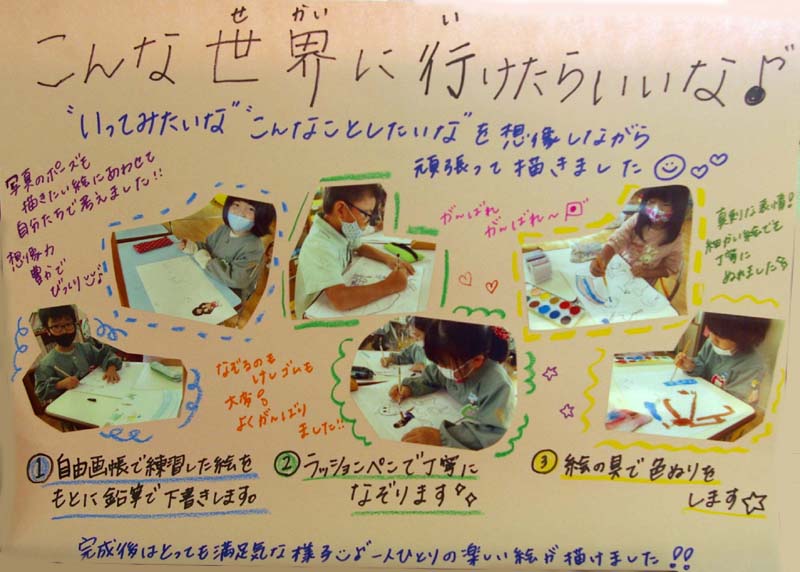 せ かい い
こんな世界に行けたらいいな♪
"いってみたいな" "こんなことしたいな"を想像しながら
頑張って描きました
写真のポーズも
描きたい絵にあわせて
自分たちで考えました!!
想像力
豊かで
びっくり
がんばれ
がんばれ〜
真剣な表情!
細かい絵でも
丁寧に
ぬれました
なぞるのも
けしゴムも
大変
よくがんばり
ました!!
① 自由画帳で練習した絵を
もとに鉛筆で下書きします。
② ラッションペンで丁寧に
なぞります
③ 絵の具で色ぬりを
します☆
完成後はとっても満足気な様子 一人ひとりの楽しい絵が描けました!!